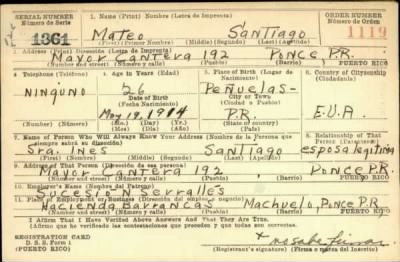 SERIAL NUMBER
Número de Serie
1. Name (Print) Nombre (Letra de Imprenta)
ORDER NUMBER
Número de Orden
1361
Mateo Santiago
1119
(First) (Primer Nombre) (Middle) (Segundo) (Last) (Apellido)
2. Address (Print) Dirección (Letra de Imprenta)
Mayor Cantera 192 Ponce P.R.
(Number and street) (Número y calle) (Barrio) PUERTO RICO
3. Telephone (Teléfono)
4. Age in Years (Edad)
5. Place of Birth (Lugar de Nacimiento)
6. Country of Citizenship (Ciudadanía)
Ninguno
26
Peñuelas-
Date of Birth
(Fecha Nacimiento)
City or Town
(Ciudad o Pueblo)
E.U.A.
May 19, 1914
P.R.
(Number) (Número)
(Mo.) (Day) (Yr.)
(Mes) (Día) (Año)
State or Country
(Estado o País)
7. Name of Person Who Will Always Know Your Address (Nombre de la Persona que siempre sabrá su dirección)
8. Relationship of That Person (Parentesco)
Sra. Ines Santiago esposa legitima
(First) (Primer Nombre) (Middle) (Segundo) (Last) (Apellido)
9. Address of That Person (Dirección de esa persona)
Mayor Cantera 192, Ponce P.R
(Number and street) (Número y calle) (Barrio) PUERTO RICO
10. Employer's Name (Nombre del Patrono)
Sucesion Serrallés
11. Place of Employment or Business (Dirección del empleo o negocio)
Hacienda Barrancas Machuelo, Ponce P.R
(Number and street) (Número y calle) (Barrio) PUERTO RICO
I Affirm That I Have Verified Above Answers and That They Are True.
(Afirmo que he verificado las contestaciones que preceden y que todas son ciertas.)
REGISTRATION CARD
D. S. S. Form 1
(PUERTO RICO)
(Registrant's signature) (Firma o marca del Inscrito)